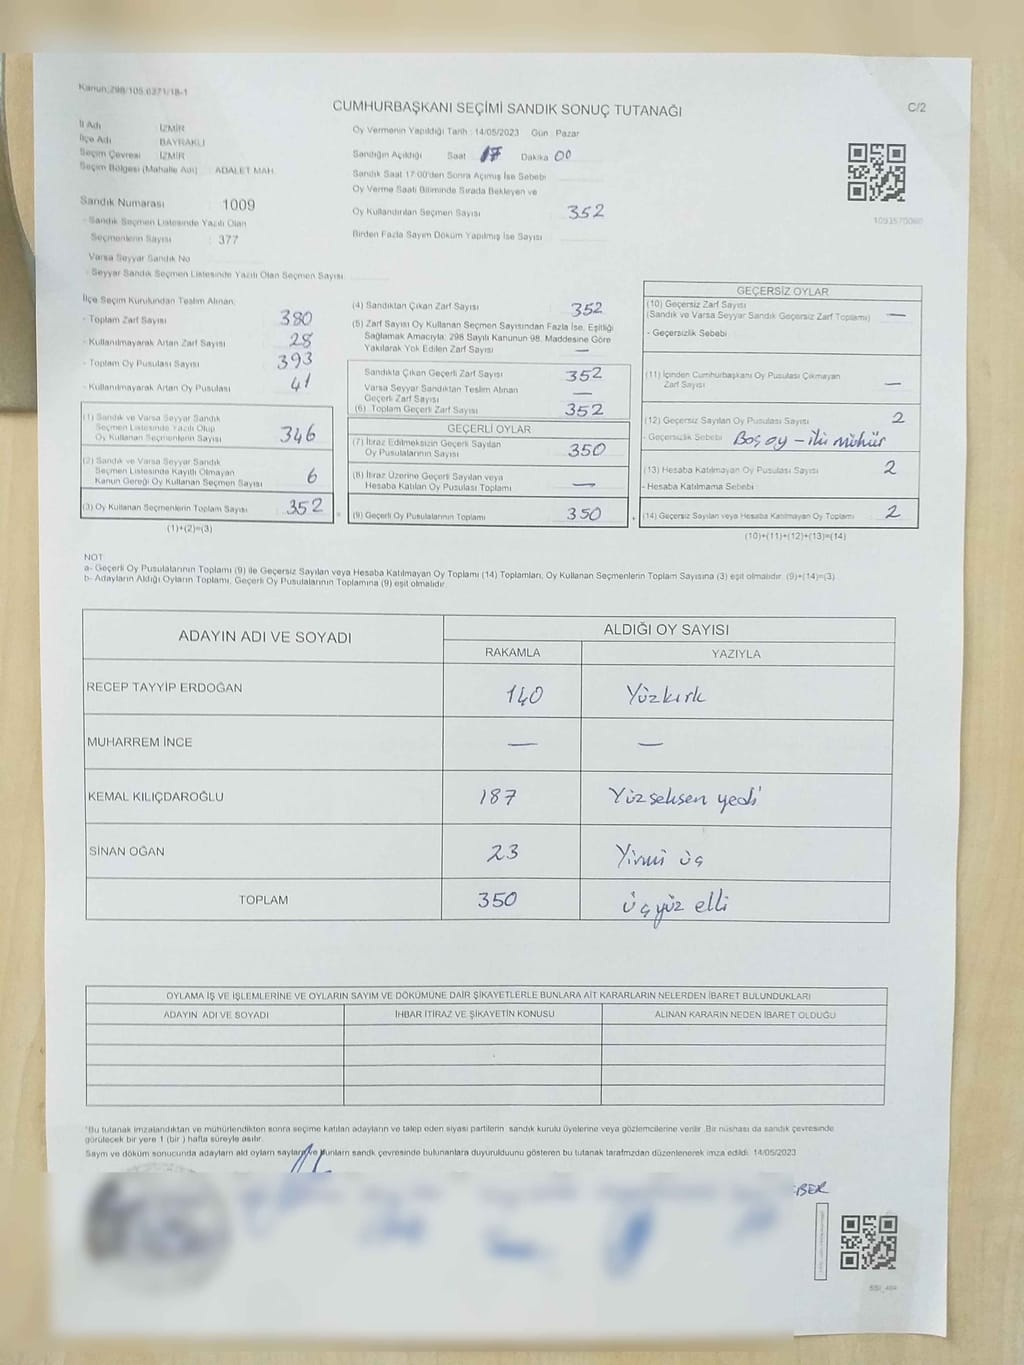 Kanun:298/105,6271/18-1
CUMHURBAŞKANI SEÇİMİ SANDIK SONUÇ TUTANAĞI
C/2
İl Adı İZMİR
İlçe Adı BAYRAKLI
Seçim Çevresi İZMİR
Seçim Bölgesi (Mahalle Adı) : ADALET MAH.
Oy Vermenin Yapıldığı Tarih : 14/05/2023 Gün : Pazar
Sandığın Açıldığı Saat 17 Dakika 00
Sandık Saat 17:00'den Sonra Açımış İse Sebebi
Oy Verme Saati Bitiminde Sırada Bekleyen ve
Oy Kullandırılan Seçmen Sayısı 352
Birden Fazla Sayım Döküm Yapılmış İse Sayısı
Sandık Numarası : 1009
- Sandık Seçmen Listesinde Yazılı Olan
Seçmenlerin Sayısı : 377
Varsa Seyyar Sandık No
- Seyyar Sandık Seçmen Listesinde Yazılı Olan Seçmen Sayısı:
İlçe Seçim Kurulundan Teslim Alınan;
- Toplam Zarf Sayısı 380
- Kullanılmayarak Artan Zarf Sayısı 28
- Toplam Oy Pusulası Sayısı 393
- Kullanılmayarak Artan Oy Pusulası 41
(1) Sandık ve Varsa Seyyar Sandık
Seçmen Listesinde Yazılı Olup
Oy Kullanan Seçmenlerin Sayısı 346
(2) Sandık ve Varsa Seyyar Sandık
Seçmen Listesinde Kayıtlı Olmayan
Kanun Gereği Oy Kullanan Seçmen Sayısı 6
(3) Oy Kullanan Seçmenlerin Toplam Sayısı 352
(1)+(2)=(3)
(4) Sandıktan Çıkan Zarf Sayısı 352
(5) Zarf Sayısı Oy Kullanan Seçmen Sayısından Fazla İse, Eşitliği
Sağlamak Amacıyla; 298 Sayılı Kanunun 98. Maddesine Göre
Yakılarak Yok Edilen Zarf Sayısı —
Sandıkta Çıkan Geçerli Zarf Sayısı 352
Varsa Seyyar Sandıktan Teslim Alınan
Geçerli Zarf Sayısı —
(6) Toplam Geçerli Zarf Sayısı 352
GEÇERLİ OYLAR
(7) İtiraz Edilmeksizin Geçerli Sayılan
Oy Pusulalarının Sayısı 350
(8) İtiraz Üzerine Geçerli Sayılan veya
Hesaba Katılan Oy Pusulası Toplamı —
(9) Geçerli Oy Pusulalarının Toplamı 350
GEÇERSİZ OYLAR
(10) Geçersiz Zarf Sayısı
(Sandık ve Varsa Seyyar Sandık Geçersiz Zarf Toplamı) —
- Geçersizlik Sebebi
(11) İçinden Cumhurbaşkanı Oy Pusulası Çıkmayan
Zarf Sayısı —
(12) Geçersiz Sayılan Oy Pusulası Sayısı 2
- Geçersizlik Sebebi Boş oy – iki mühür
(13) Hesaba Katılmayan Oy Pusulası Sayısı 2
- Hesaba Katılmama Sebebi
(14) Geçersiz Sayılan veya Hesaba Katılmayan Oy Toplamı 2
(10)+(11)+(12)+(13)=(14)
NOT
a- Geçerli Oy Pusulalarının Toplamı (9) ile Geçersiz Sayılan veya Hesaba Katılmayan Oy Toplamı (14) Toplamları, Oy Kullanan Seçmenlerin Toplam Sayısına (3) eşit olmalıdır. (9)+(14)=(3)
b- Adayların Aldığı Oyların Toplamı, Geçerli Oy Pusulalarının Toplamına (9) eşit olmalıdır.
ADAYIN ADI VE SOYADI ALDIĞI OY SAYISI
RAKAMLA YAZIYLA
RECEP TAYYİP ERDOĞAN 140 Yüzkırk
MUHARREM İNCE — —
KEMAL KILIÇDAROĞLU 187 Yüzseksen yedi
SİNAN OĞAN 23 Yirmi üç
TOPLAM 350 üçyüz elli
OYLAMA İŞ VE İŞLEMLERİNE VE OYLARIN SAYIM VE DÖKÜMÜNE DAİR ŞİKAYETLERLE BUNLARA AİT KARARLARIN NELERDEN İBARET BULUNDUKLARI
ADAYIN ADI VE SOYADI İHBAR İTİRAZ VE ŞİKAYETİN KONUSU ALINAN KARARIN NEDEN İBARET OLDUĞU
*Bu tutanak imzalandıktan ve mühürlendikten sonra seçime katılan adayların ve talep eden siyasi partilerin sandık kurulu üyelerine veya gözlemcilerine verilir. Bir nüshası da sandık çevresinde
görülecek bir yere 1 (bir ) hafta süreyle asılır.
Sayım ve döküm sonucunda adayların aldı oyların sayıları ve bunların sandk çevresinde bulunanlara duyurulduunu gösteren bu tutanak tarafmzdan düzenlenerek imza edildi. 14/05/2023
BER